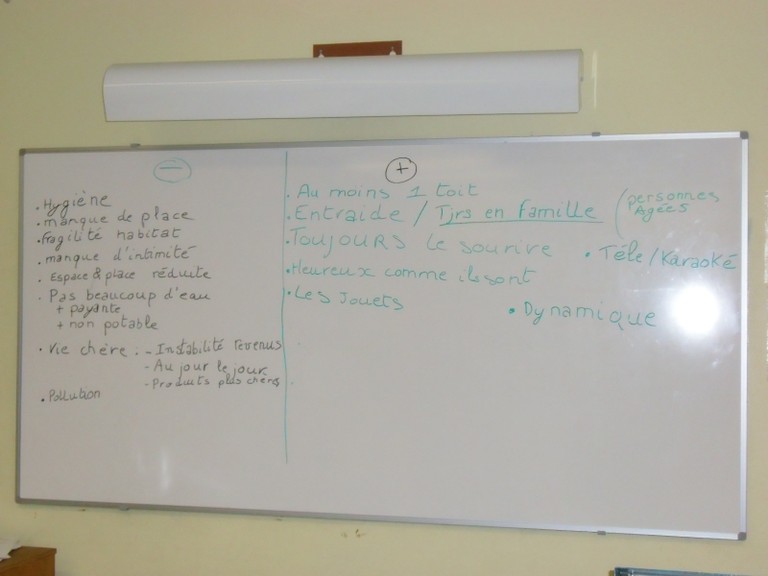 −
. Hygiène
. manque de place
. Fragilité habitat
. manque d'intimité
. Espace & place réduite
. Pas beaucoup d'eau
+ payante
+ non potable
. Vie chère : - Instabilité revenus
- Au jour le jour
- Produits plus chers
. Pollution
+
. Au moins 1 toit
. Entraide / Tjrs en famille (personnes Agées
. Toujours le sourire
. Téle/Karaoké
. Heureux comme ils sont
. Les Jouets
. Dynamique